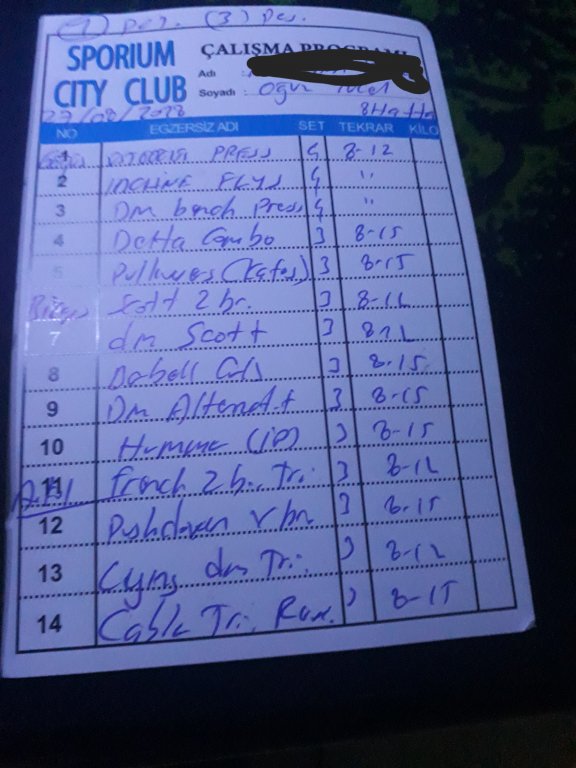 (1) Paz. (3) Per.
SPORIUM ÇALIŞMA PROGRAMI
CITY CLUB Adı :
Soyadı : Oğuz
8Hafta
NO EGZERSİZ ADI SET TEKRAR KİLO
1 PRESS 4 8-12
2 INCLINE FLYS 4 "
3 Dm bench Press 4 "
4 Detta Combo 3 8-15
5 Pullowers (Kafes) 3 8-15
Scott 2 br. 3 8-12
7 dm Scott 3 8-12
8 3 8-15
9 Dm Alternat 3 8-15
10 Hummer (ip) 3 8-15
11 french 2 br. Tri. 3 8-12
12 Pushdown V br. 3 8-15
13 dm Tri. 3 8-12
14 Cable Tri. 3 8-15